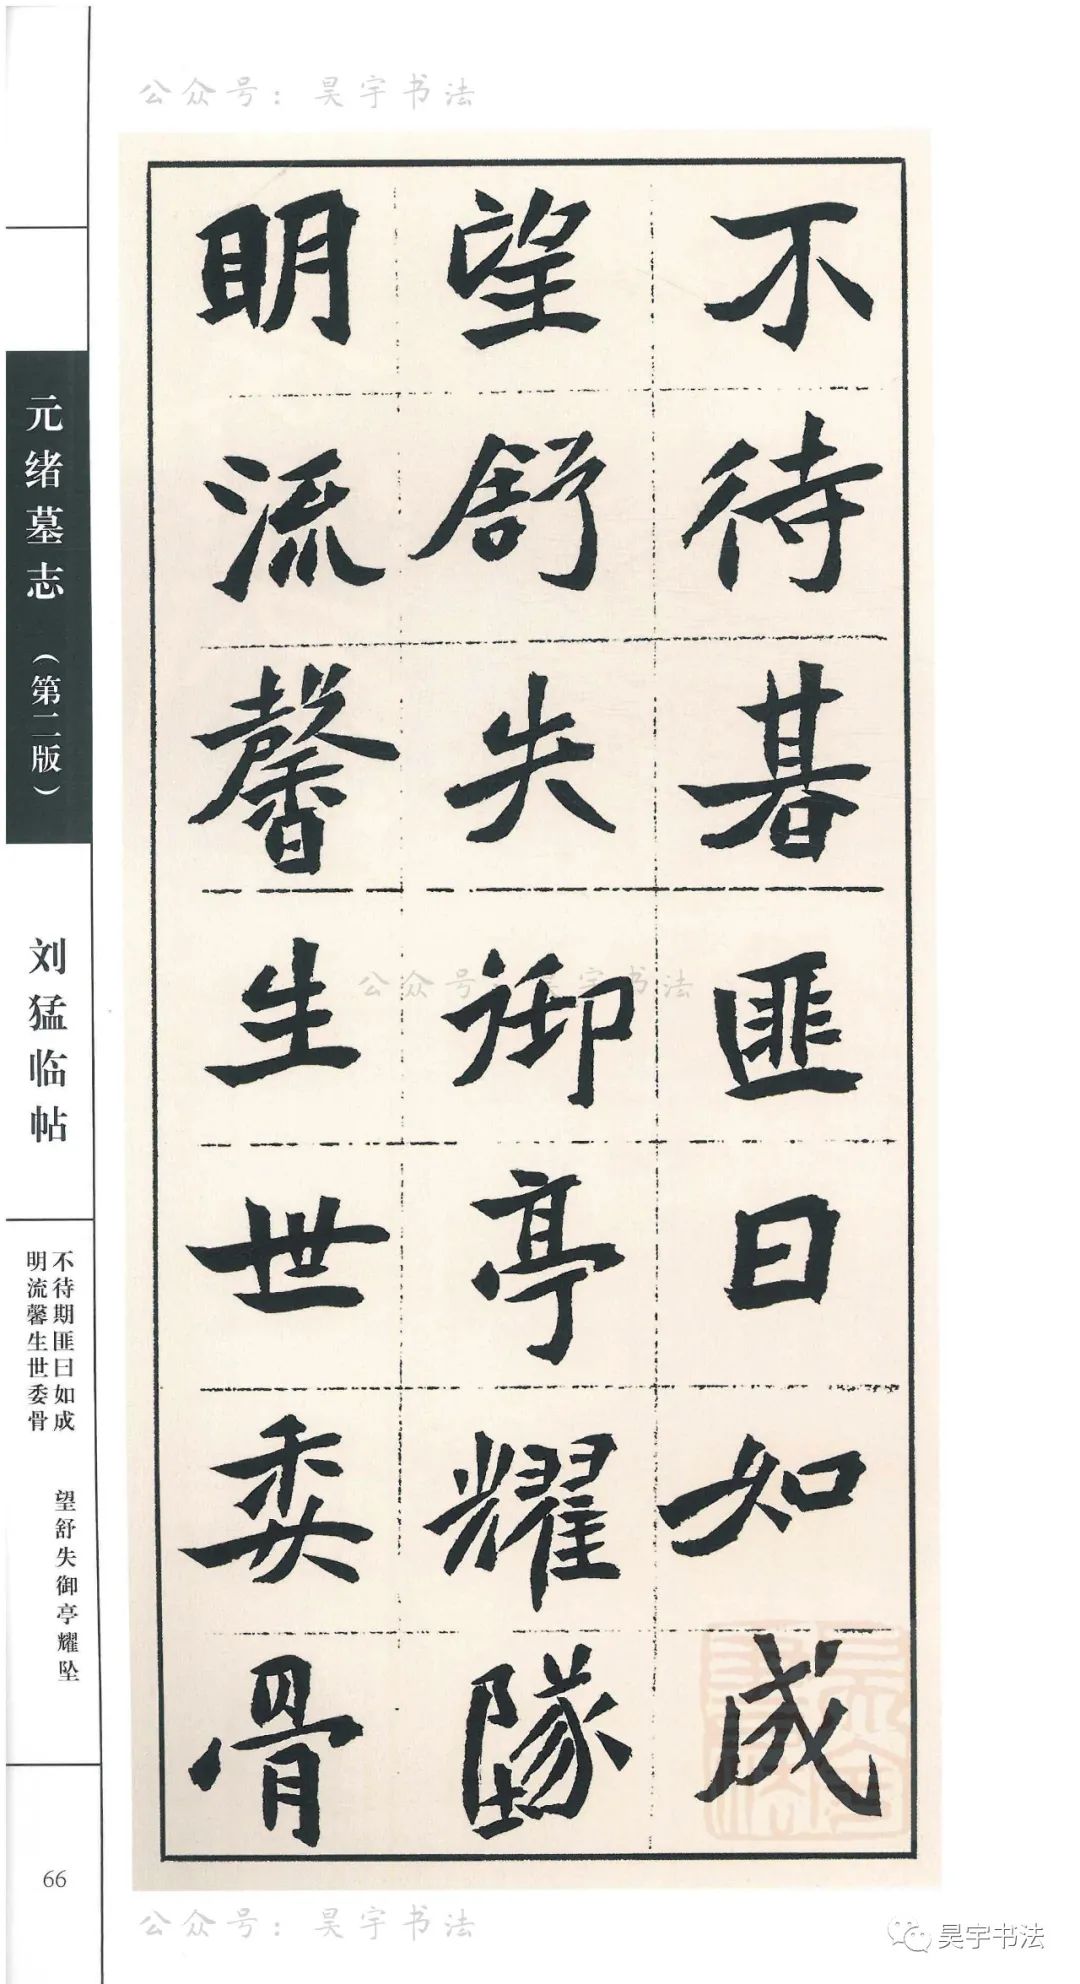 公众号：昊宇书法
不待朞匪曰如成
望舒失御亭耀墜
明流馨生世委骨
公众号：昊宇书法
元绪墓志（第二版）
刘猛临帖
不待期匪曰如成
明流馨生世委骨
望舒失御亭耀坠
66
公众号：昊宇书法
昊宇书法